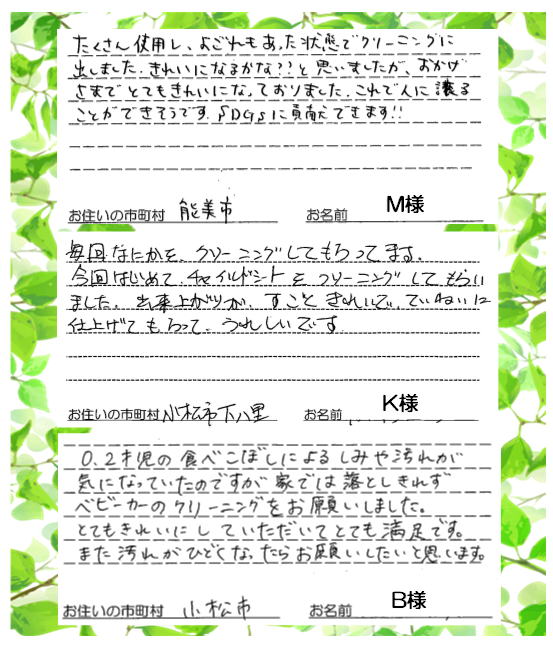 たくさん使用し、よごれもあった状態でクリーニングに
出しました。きれいになるかな??と思いましたが、おかげ
さまでとてもきれいになっておりました。これで人に譲る
ことができそうです。SDGsに貢献できます!!
お住いの市町村 能美市 お名前 M様
毎回なにかを、クリーニングしてもらってます。
今回はじめて、チャイルドシートをクリーニングしてもらい
ました。出来上がりが、すごときれいで、ていねいに
仕上げてもらって、うれしいです
お住いの市町村 小松市下八里 お名前 K様
0.2才児の食べこぼしによるしみや汚れが
気になっていたのですが家では落としきれず
ベビーカーのクリーニングをお願いしました。
とてもきれいにしていただいてとても満足です。
また汚れがひどくなったらお願いしたいと思います。
お住いの市町村 小松市 お名前 B様